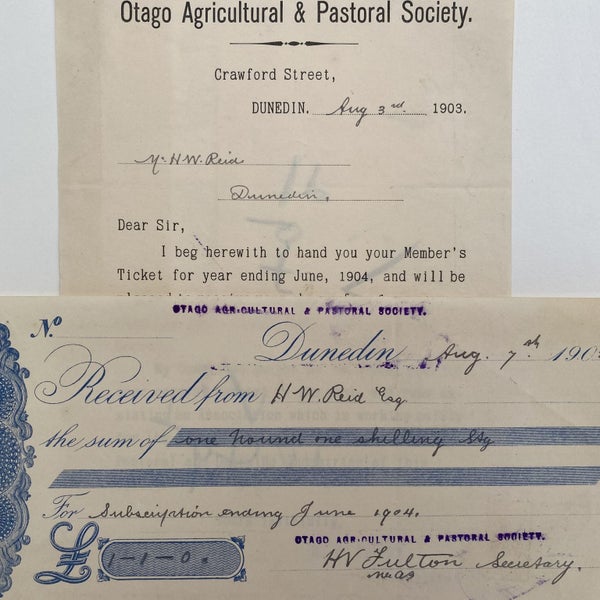 Otago Agricultural & Pastoral Society.
Crawford Street,
DUNEDIN. Aug 3rd 1903.
Mr H W Reid
Dunedin,
Dear Sir,
I beg herewith to hand you your Member's
Ticket for year ending June, 1904, and will be
OTAGO AGRICULTURAL & PASTORAL SOCIETY.
No
Dunedin Aug. 7th 190
Received from H W Reid Esq
the sum of one Pound one shilling Stg
For Subscription ending June 1904.
£ 1-1-0.
OTAGO AGRICULTURAL & PASTORAL SOCIETY.
HV Fulton Secretary.